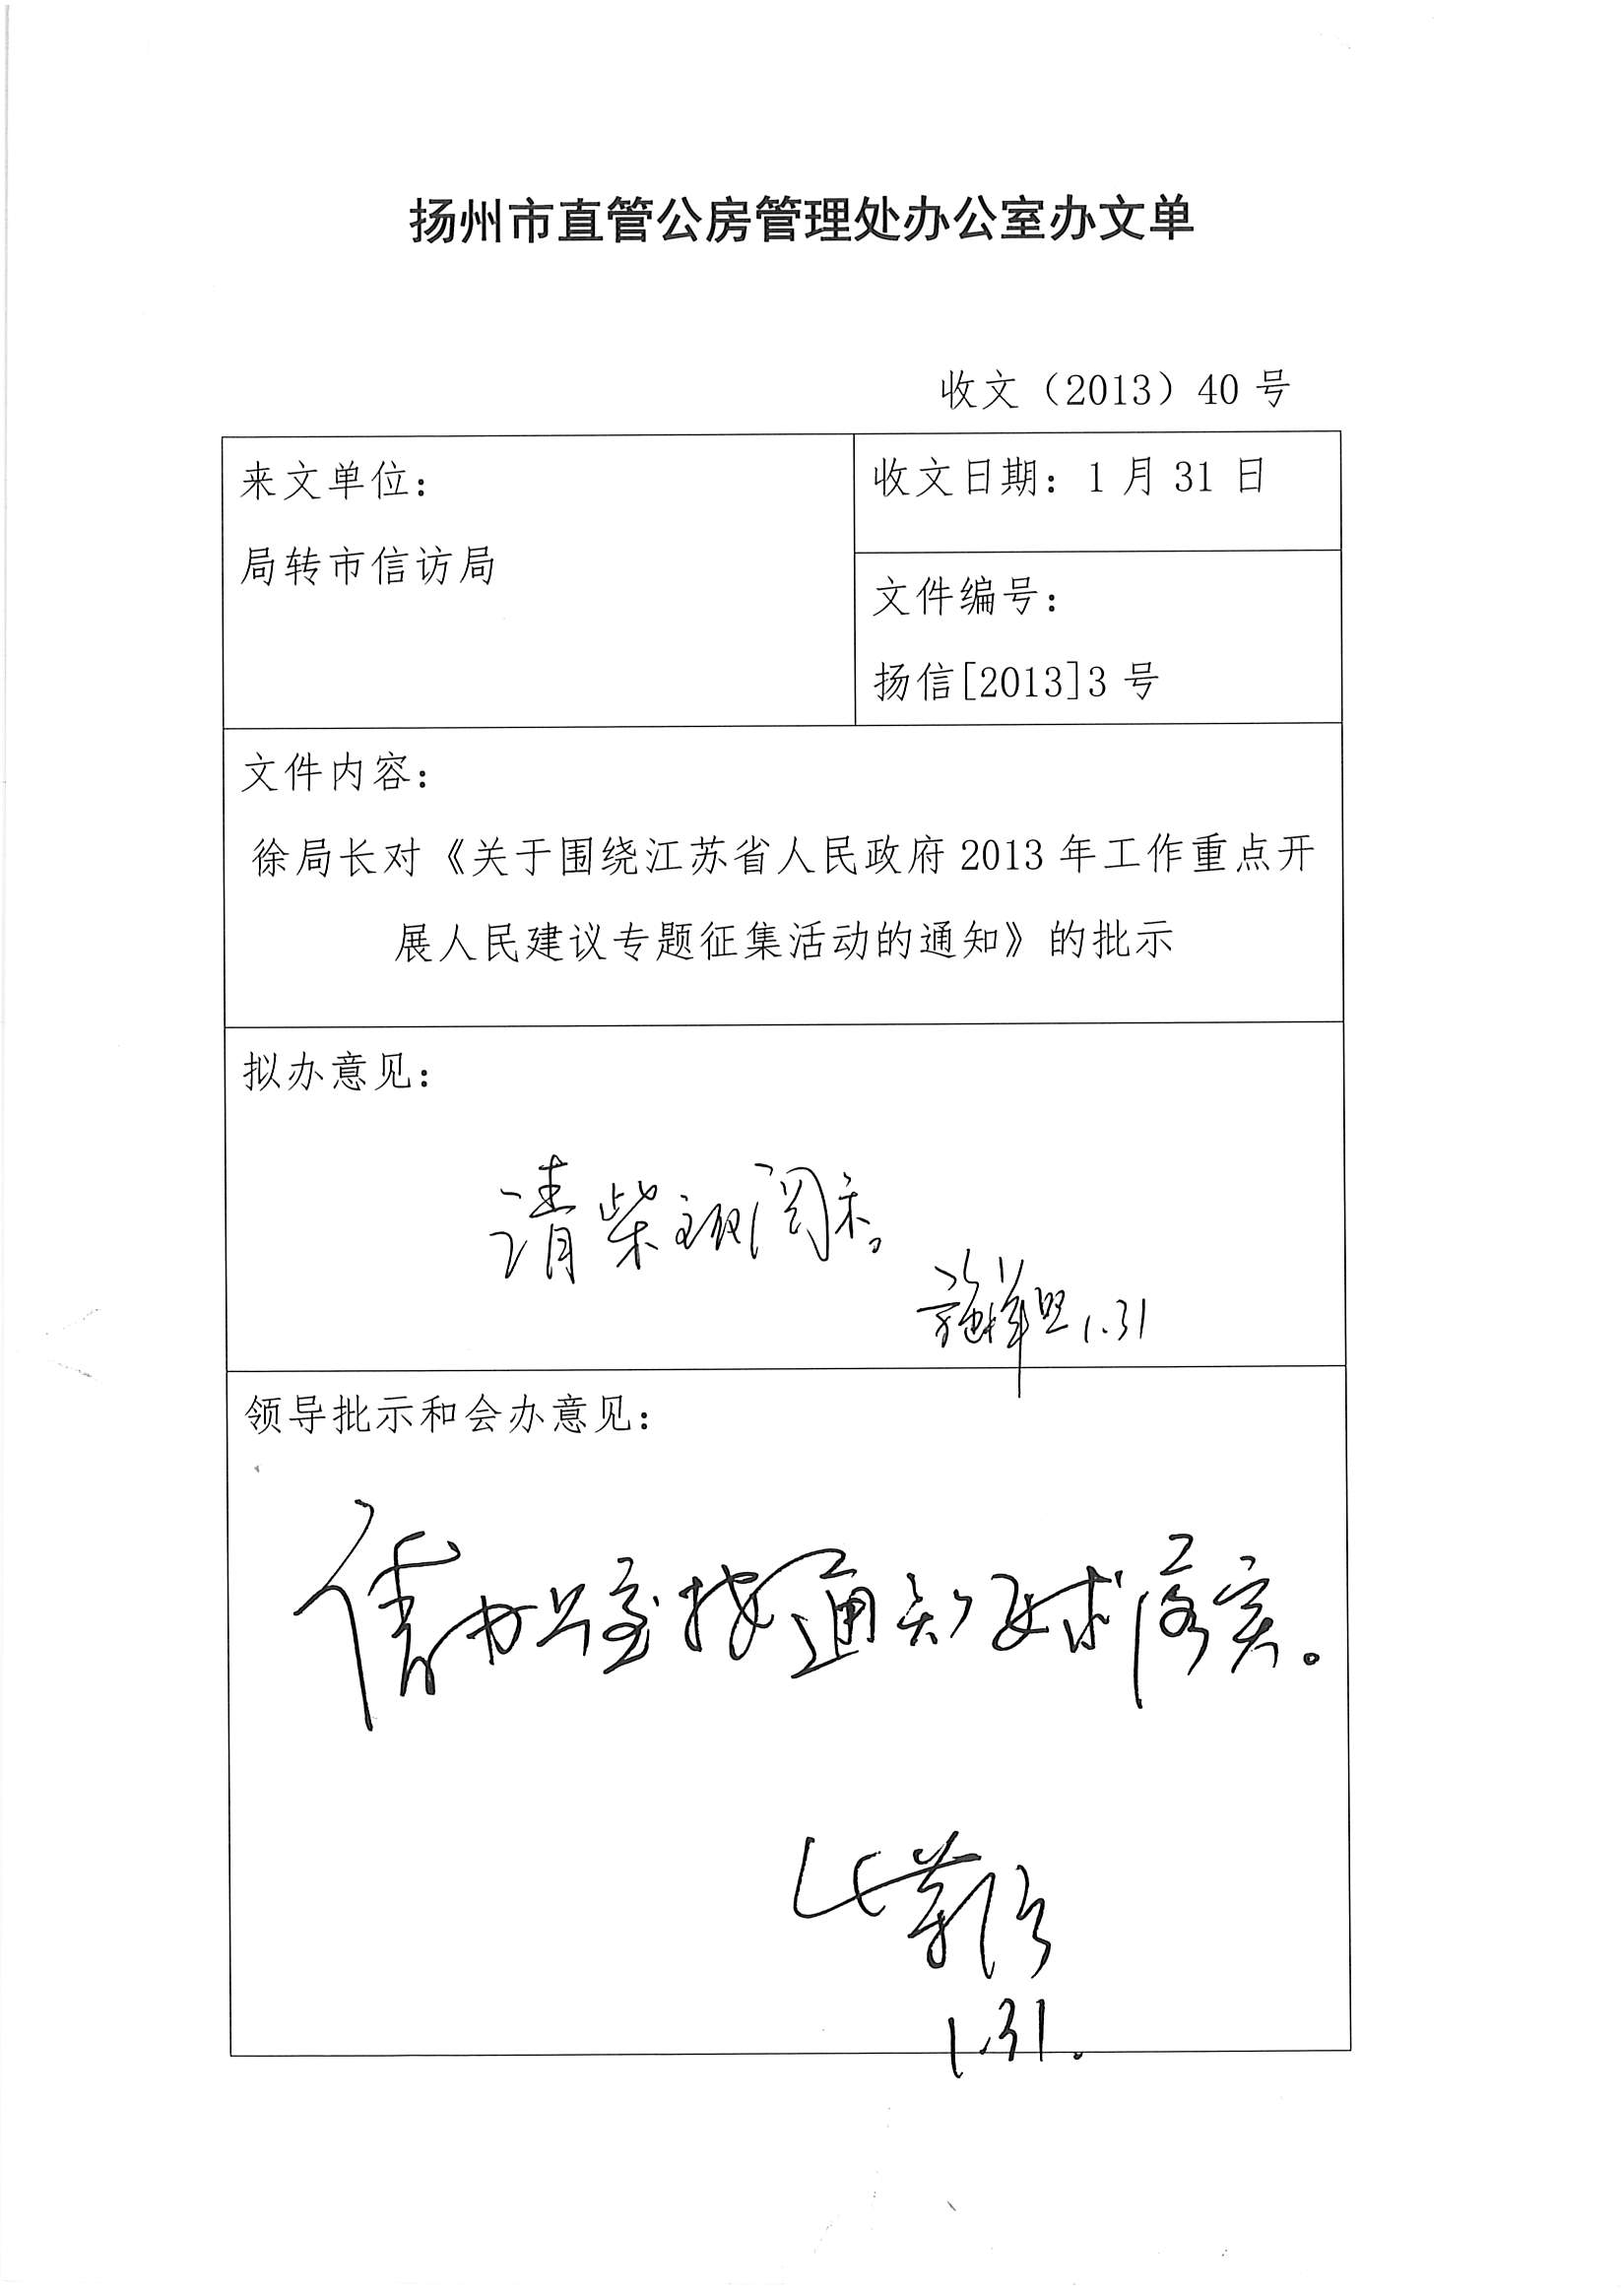 扬州市直管公房管理处办公室办文单
收文（2013）40 号
来文单位：
局转市信访局
收文日期：1 月 31 日
文件编号：
扬信[2013]3 号
文件内容：
徐局长对《关于围绕江苏省人民政府 2013 年工作重点开
展人民建议专题征集活动的通知》的批示
拟办意见：
请柴主任阅示。
1.31
领导批示和会办意见：
请办公室按通知要求落实。
1.31.